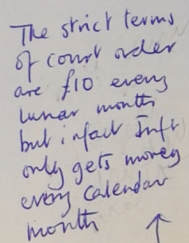 The strict terms
of court order
are £10 every
lunar month
but infact Inft
only gets money
every calendar
month